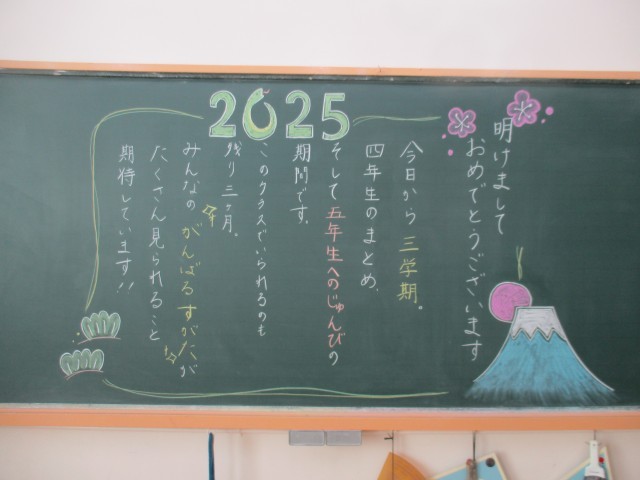 2025
明けまして
おめでとうございます
今日から三学期。
四年生のまとめ、
そして五年生へのじゅんびの
期間です。
このクラスでいられるのも
残り三ヶ月。
みんなのがんばるすがたが
たくさん見られること
期待しています!!